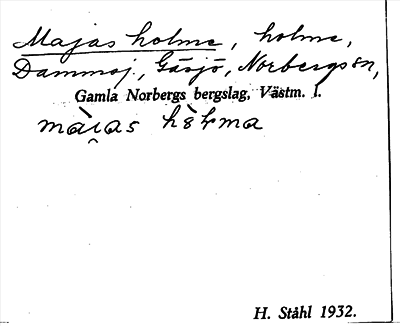 Majas holme, holme,
Dammsj, Gäsjö, Norbergs sn,
Gamla Norbergs bergslag, Västm. l.
H. Ståhl 1932.